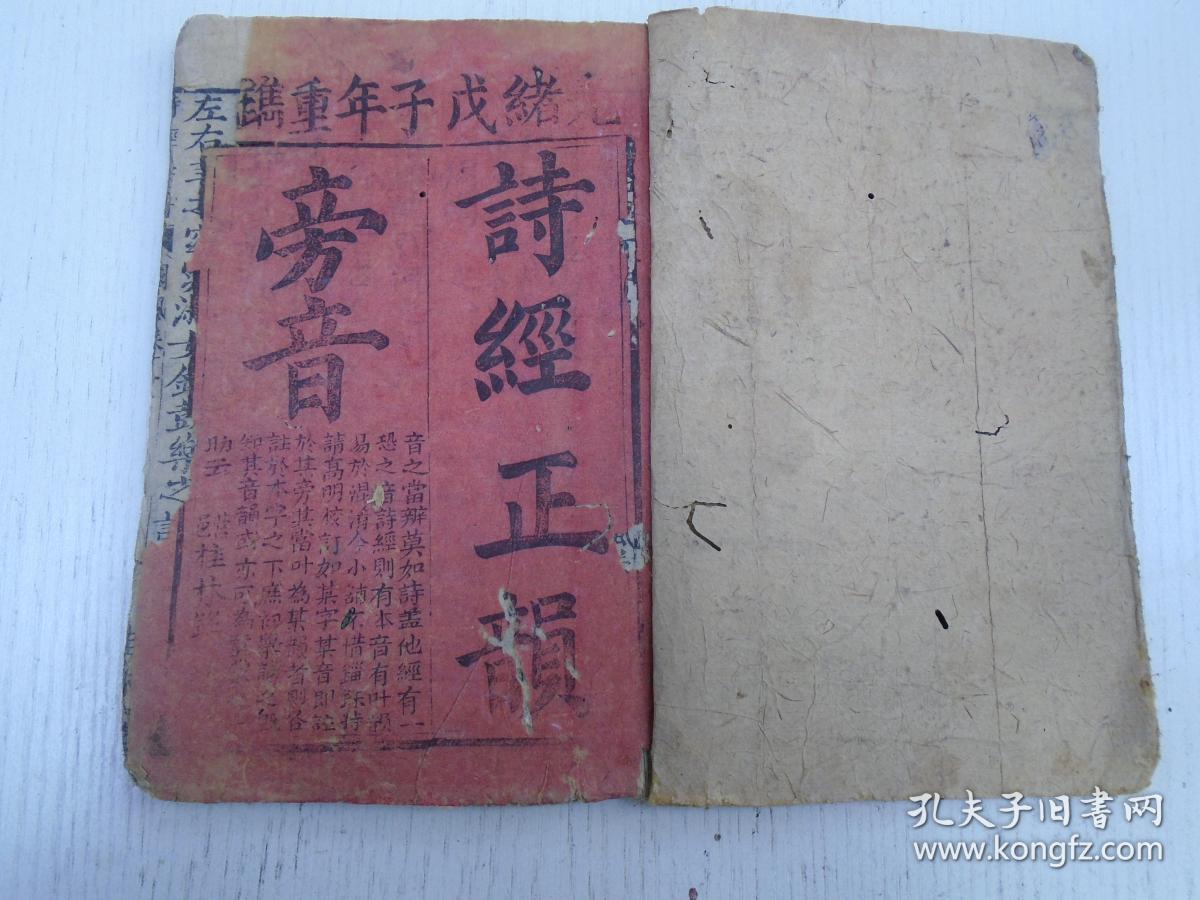 緒戊子年重鐫
詩經正韻
旁音
音之當辨莫如詩蓋他經有一
恐之音詩經則有本音有叶韻
易於混淆今小鋪不惜錙銖特
請高明校訂如某字某音即註
於其旁其當叶為某韻者則各
註於本字之下庶初學誦之
知其音韻或亦可為
助云
桂林
左右
女金
樂之
孔夫子旧书网
www.kongfz.com